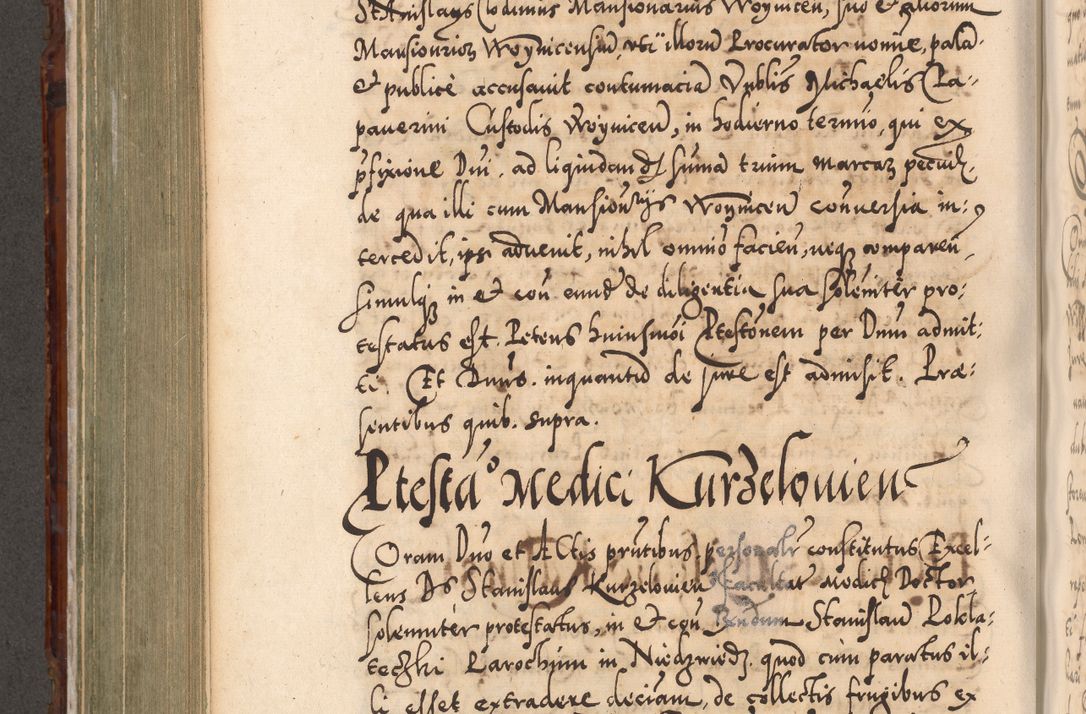 Stanislaus Clodinius Mansionarius Woynicen, suo et aliorum
Mansionarioꝝ Woynicensiū, uti illorū Procurator nomīe, palā
et publicè accusavit contumaciā Vnblis Michaelis Cza-
paverini Custodis Woynicen̄, in hodierno termīo, qui ex
pfixione Dni, ad liquidandā sumā trium marcaꝝ pecuń.
de qua illi cum Mansionarijs Woynicen̄ conversia in-
tercedit, ipsi advenit, nihil omnino facien̄, neqꝫ comparen̄,
simulqꝫ in et con̄ eund̄ de diligentia sua solēniter pro-
testatus est. Petens huiusmoi Ptestōnem per Dnū admit-
ti. Et Dnūs. inquantū de jure est admisit. Præ-
sentibus quib. supra.
Ptestāo Medici Kurzelovien̄
Coram Dno et Actis prn̄tibus personalr constitutus Excel-
lens Ds Stanislaus Kurzelovien̄ facultat Medicæ Doctor
solenniter protestatus, in et con̄ Vendum Stanislaū Pokla-
teczki Parochum in Niedzwiedz. quod cum paratus il-
li esset extradere decimam, de collectis frugibus ex